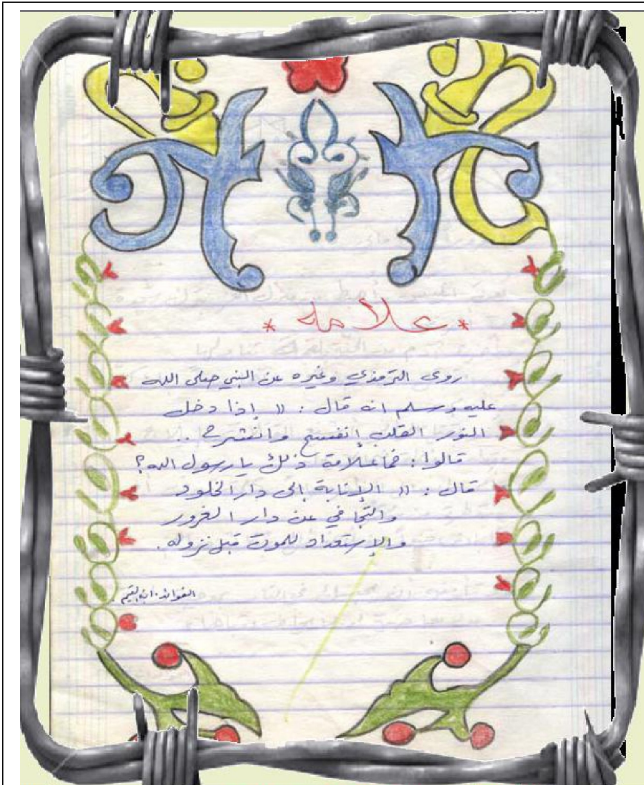 * علامه *
روى الترمذي وغيره عن النبي صلى الله
عليه وسلم انه قال : (( إذا دخل
النور القلب إنفسح وانشرح ..
قالوا : فما علامة ذلك يا رسول الله ؟
قال : (( الإنابة إلى دار الخلود
والتجافي عن دار الغرور
والإستعداد للموت قبل نزوله .
الفوائد . ابن القيم